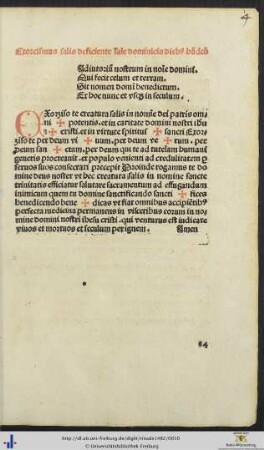 Exorcismus salis deficiente sale dominicis dieb9 bñdcō
Adiutoriū nostrum in noīe domini.
Qui fecit celum et terram.
Sit nomen domī benedictum.
Ex hoc nunc et vsq3 in seculum.
EXorziso te creatura salis in nomīe dei patris omni
✠ potentis. et in caritate domini nostri ihu
✠ cristi. et in virtute spiritus ✠ sancti Exor
ziso te per deum vi ✠ uum. per deum ve ✠ rum. per
deum san ✠ ctum. per deum qui te ad tutelam humani
generis procreauit. et populo venienti ad credulitatem p
seruos suos consecrari precepit Proinde rogamus te do
mine deus noster vt hec creatura salis in nomine sancte
trinitatis efficiatur salutare sacramentum ad effugandum
inimicum quem tu domine sanctificando sancti ✠ fices
benedicendo bene ✠ dicas vt fiat omnibus accipiētib9
perfecta medicina permanens in visceribus eorum in no
mine domini nostri ihesu cristi. qui venturus est iudicare
viuos et mortuos et seculum per ignem. Amen
http://dl.ub.uni-freiburg.de/diglit/
© Universitätsbibliothek Freiburg